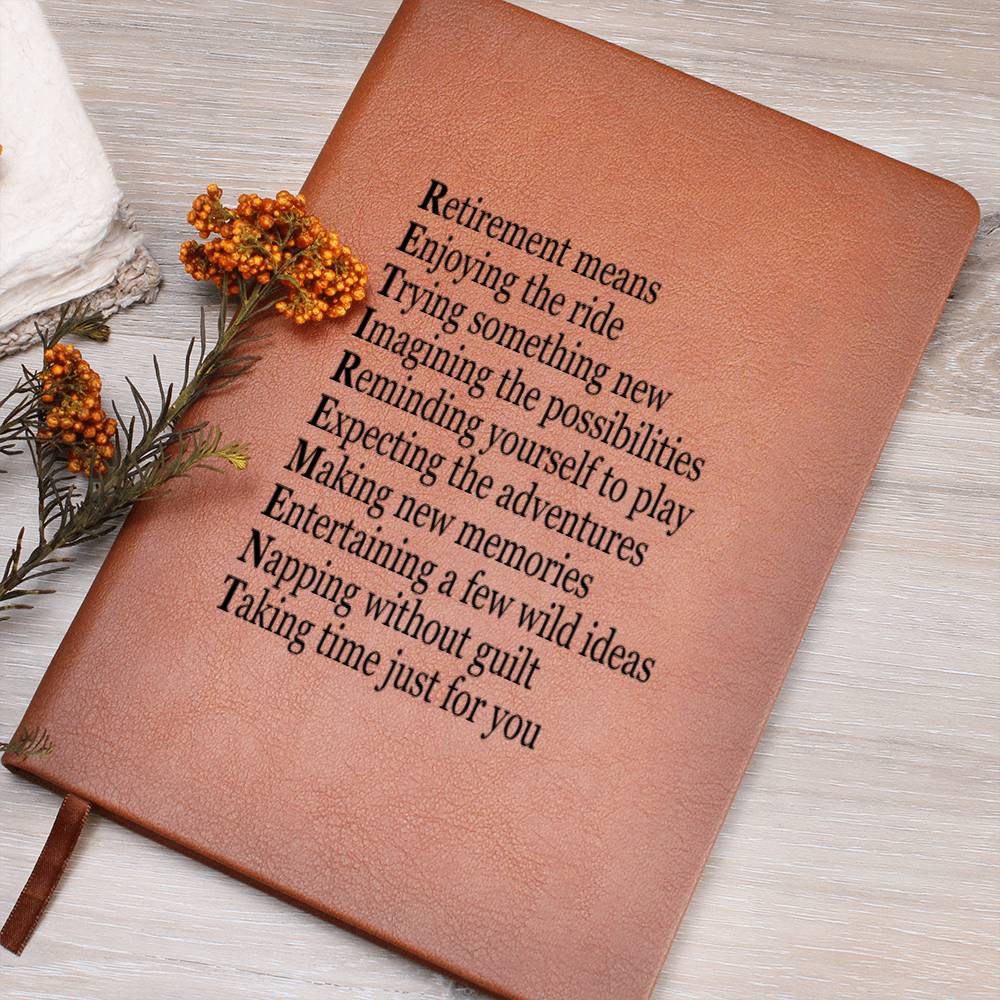 Retirement means
Enjoying the ride
Trying something new
Imagining the possibilities
Reminding yourself to play
Expecting the adventures
Making new memories
Entertaining a few wild ideas
Napping without guilt
Taking time just for you